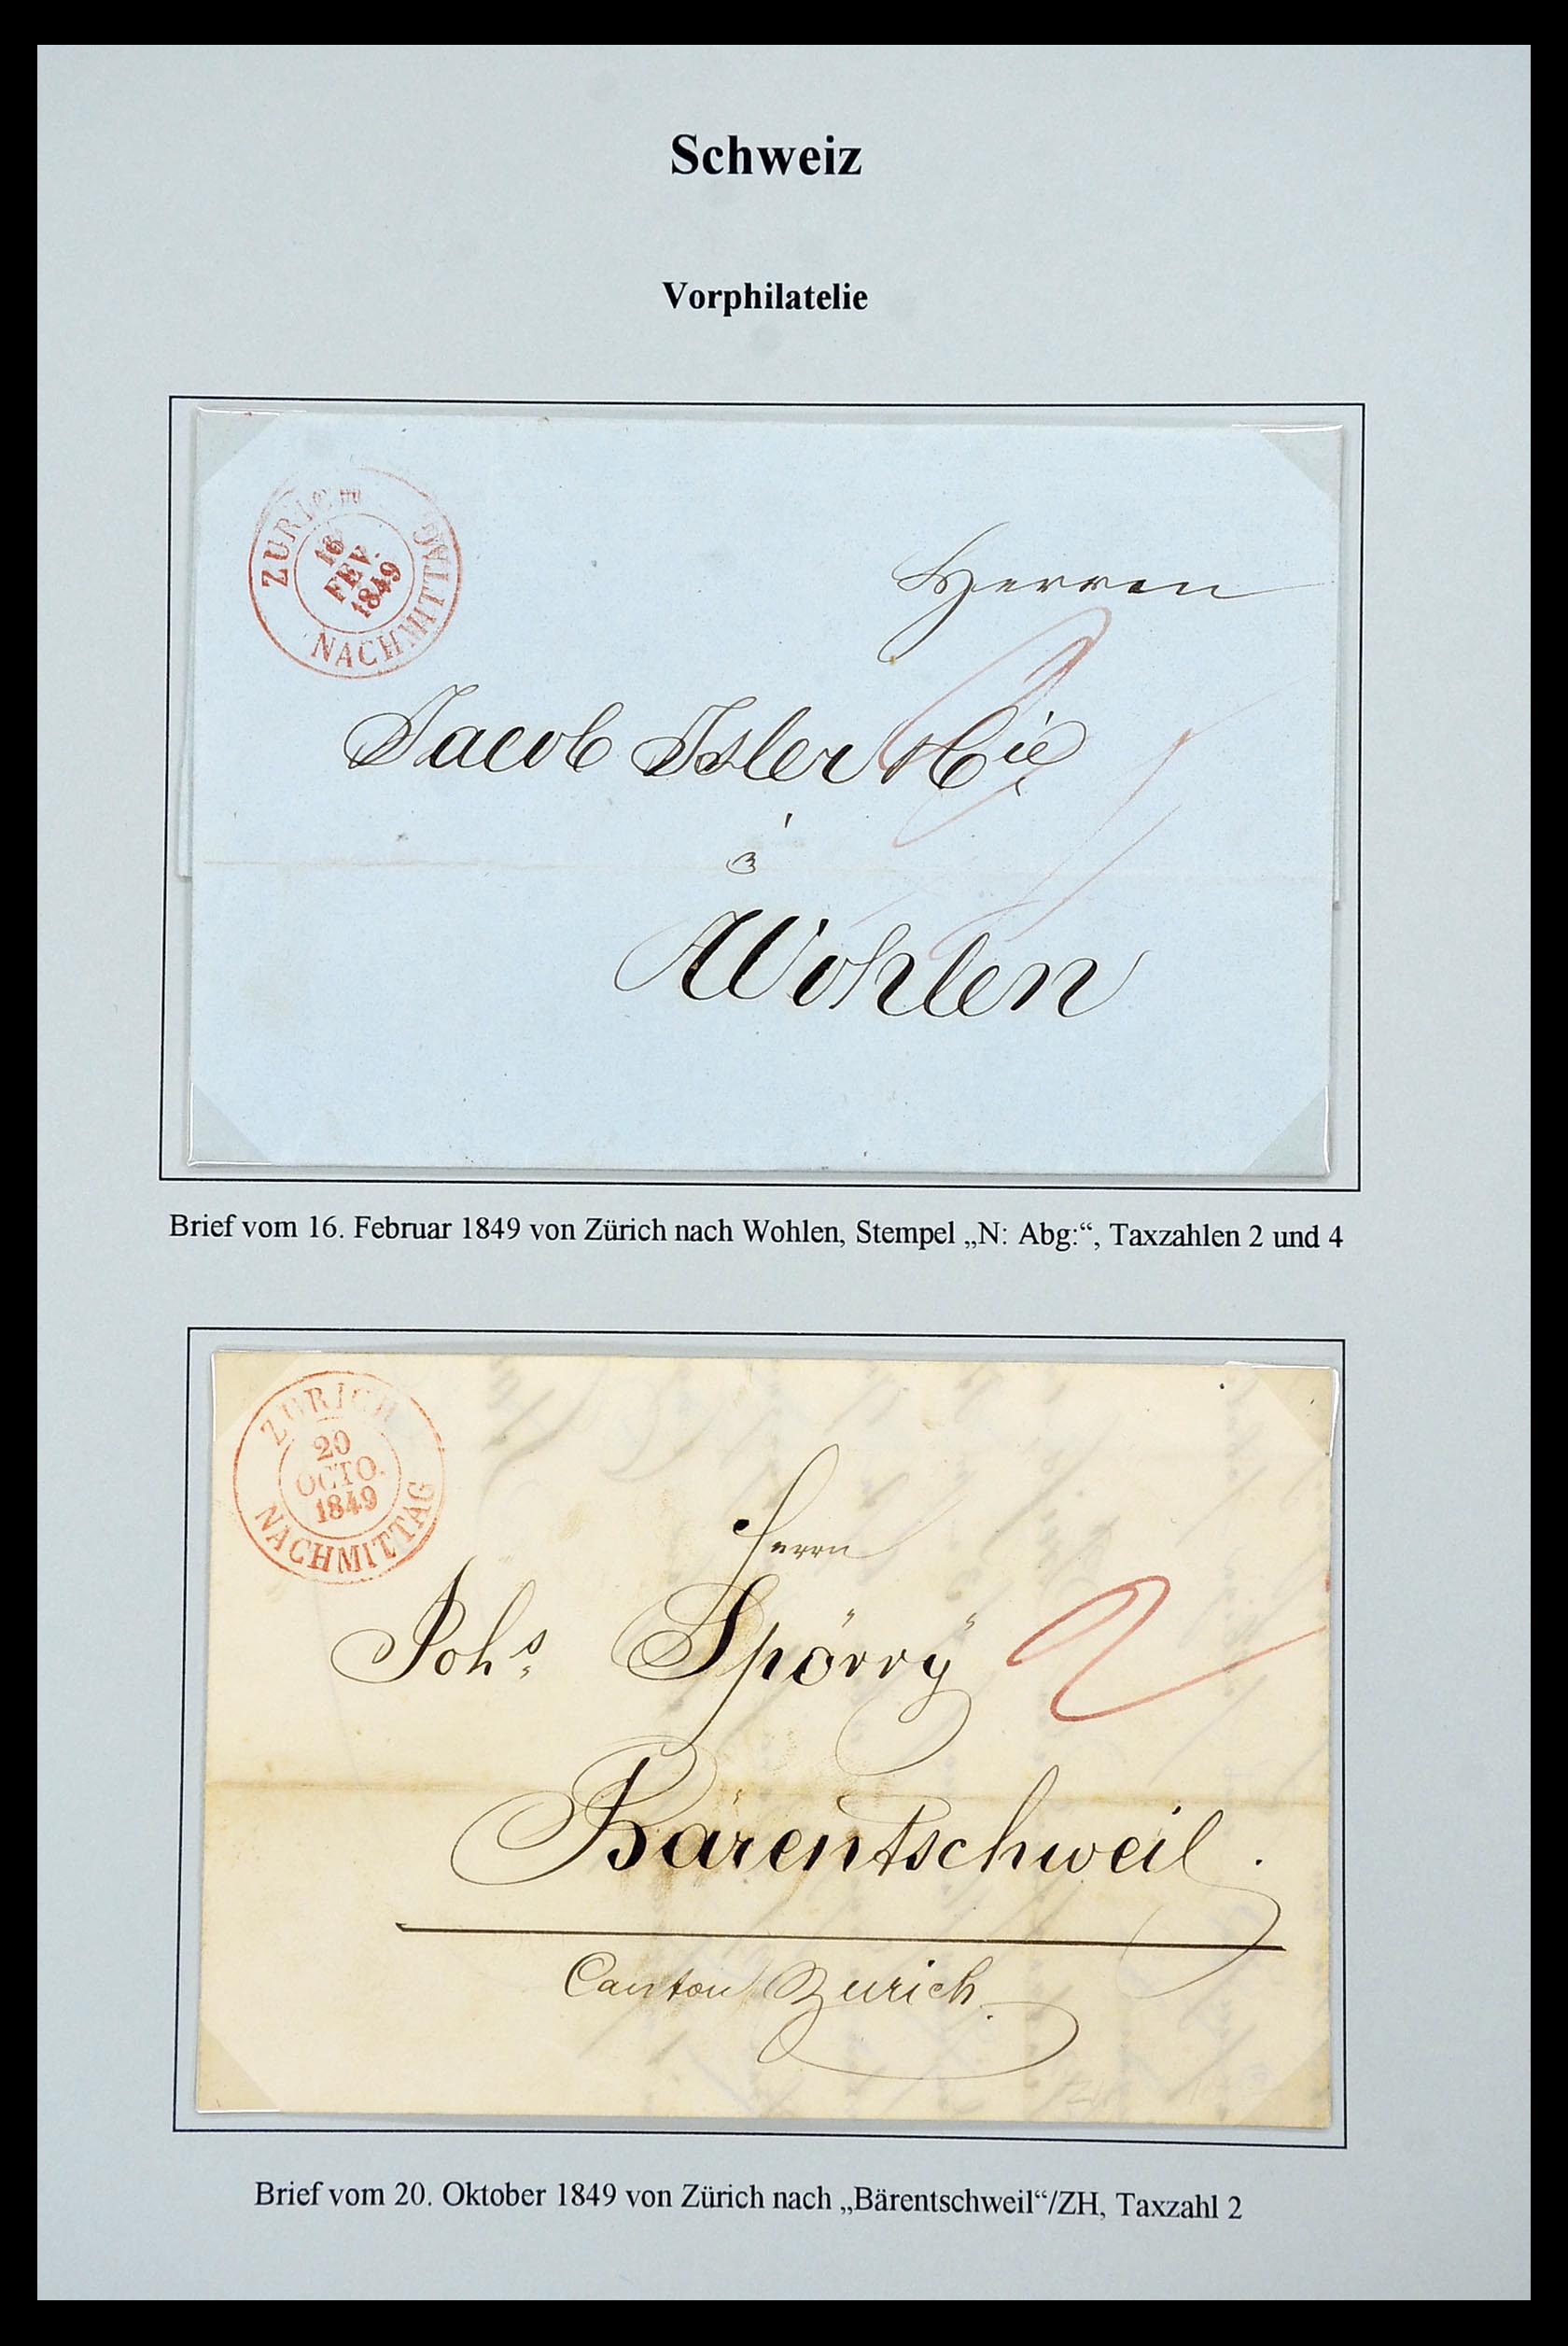 Schweiz
Vorphilatelie
ZURICH
16
FEV.
1849
NACHMITTAG
Herren
Jacob Isler & Cie
à
Wohlen
Brief vom 16. Februar 1849 von Zürich nach Wohlen, Stempel „N: Abg:“, Taxzahlen 2 und 4
ZURICH
20
OCTO.
1849
NACHMITTAG
Herrn
Johs. Spörry
2
Bärentschweil.
Canton Zurich.
Brief vom 20. Oktober 1849 von Zürich nach „Bärentschweil“/ZH, Taxzahl 2